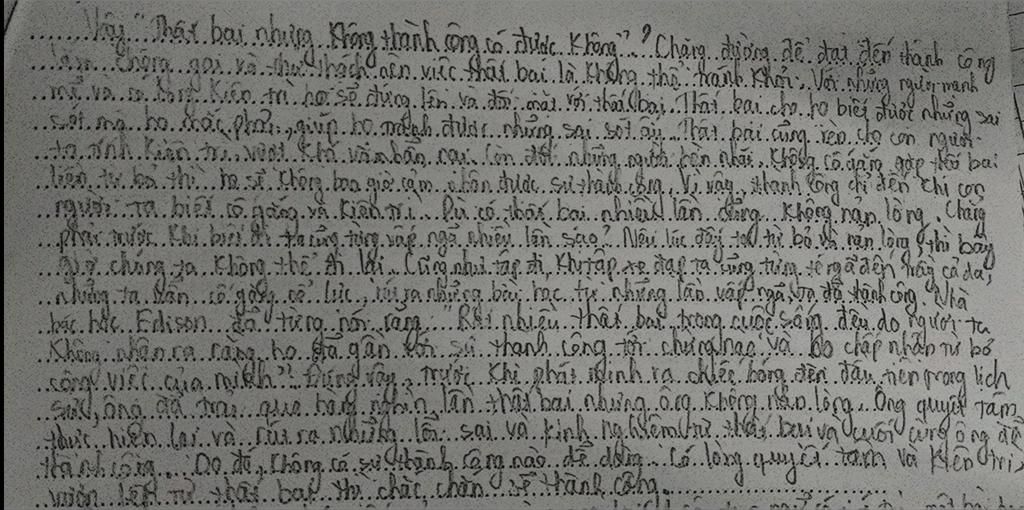 Vậy "Thất bại nhưng không thành công có được không"? Chặng đường để đạt đến thành công
lắm chông gai và thử thách nên việc thất bại là không thể tránh khỏi. Với những người mạnh
mẽ và có lòng kiên trì họ sẽ đứng lên và đối mặt với thất bại. Thất bại cho họ biết được những sai
sót mà họ mắc phải, giúp họ tránh được những sai sót ấy. Thất bại cũng rèn cho con người
ta tính kiên trì, vượt khó vươn lên. Còn đối những người hèn nhát, không cố gắng gặp thất bại
liền từ bỏ thì họ sẽ không bao giờ cảm nhận được sự thành công. Vì vậy, thành công chỉ đến khi con
người ta biết cố gắng và kiên trì. Dù có thất bại nhiều lần đừng không nản lòng. Chẳng
phải trước khi biết đi ta cũng từng vấp ngã nhiều lần sao? Nếu lúc đấy ta từ bỏ và nản lòng, thì bây
giờ chúng ta không thể đi lại. Cũng như tập đi, khi tập xe đạp ta cũng từng té ngã đến trầy cả da,
nhưng ta vẫn cố gắng nỗ lực, rút ra những bài học từ những lần vấp ngã và đã thành công. Nhà
bác học Edison đã từng nói rằng: "Rất nhiều thất bại trong cuộc sống đều do người ta
không nhận ra rằng họ đã gần với sự thành công tới chừng nào và họ chấp nhận từ bỏ
công việc của mình". Đúng vậy, trước khi phát minh ra chiếc bóng đèn đầu tiên trong lịch
sử, ông đã trải qua hàng nghìn lần thất bại nhưng ông không nản lòng. Ông quyết tâm
thực hiện lại và rút ra những lỗi sai và kinh nghiệm từ thất bại và cuối cùng ông đã
thành công. Do đó, không có sự thành công nào dễ dàng. Có lòng quyết tâm và kiên trì,
vươn lên từ thất bại thì chắc chắn sẽ thành công.